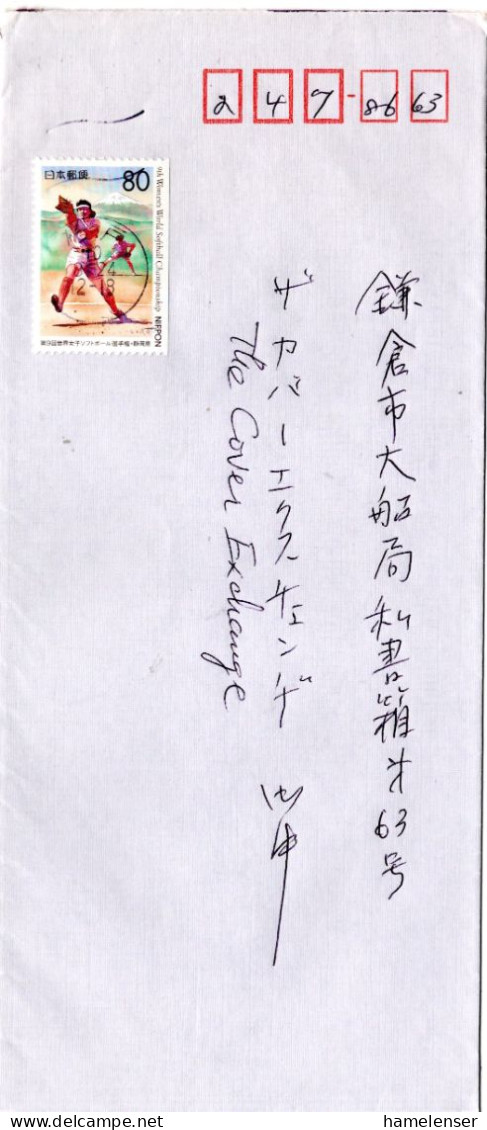 247-8663
日本郵便 80
9th Women's World Softball Championship NIPPON
第9回世界女子ソフトボール選手権・静岡県
24
12-18
鎌倉市大船局私書箱第63号
ザカバーエクスチェンヂ 御中
The Cover Exchange
www.delcampe.net
hamelenser